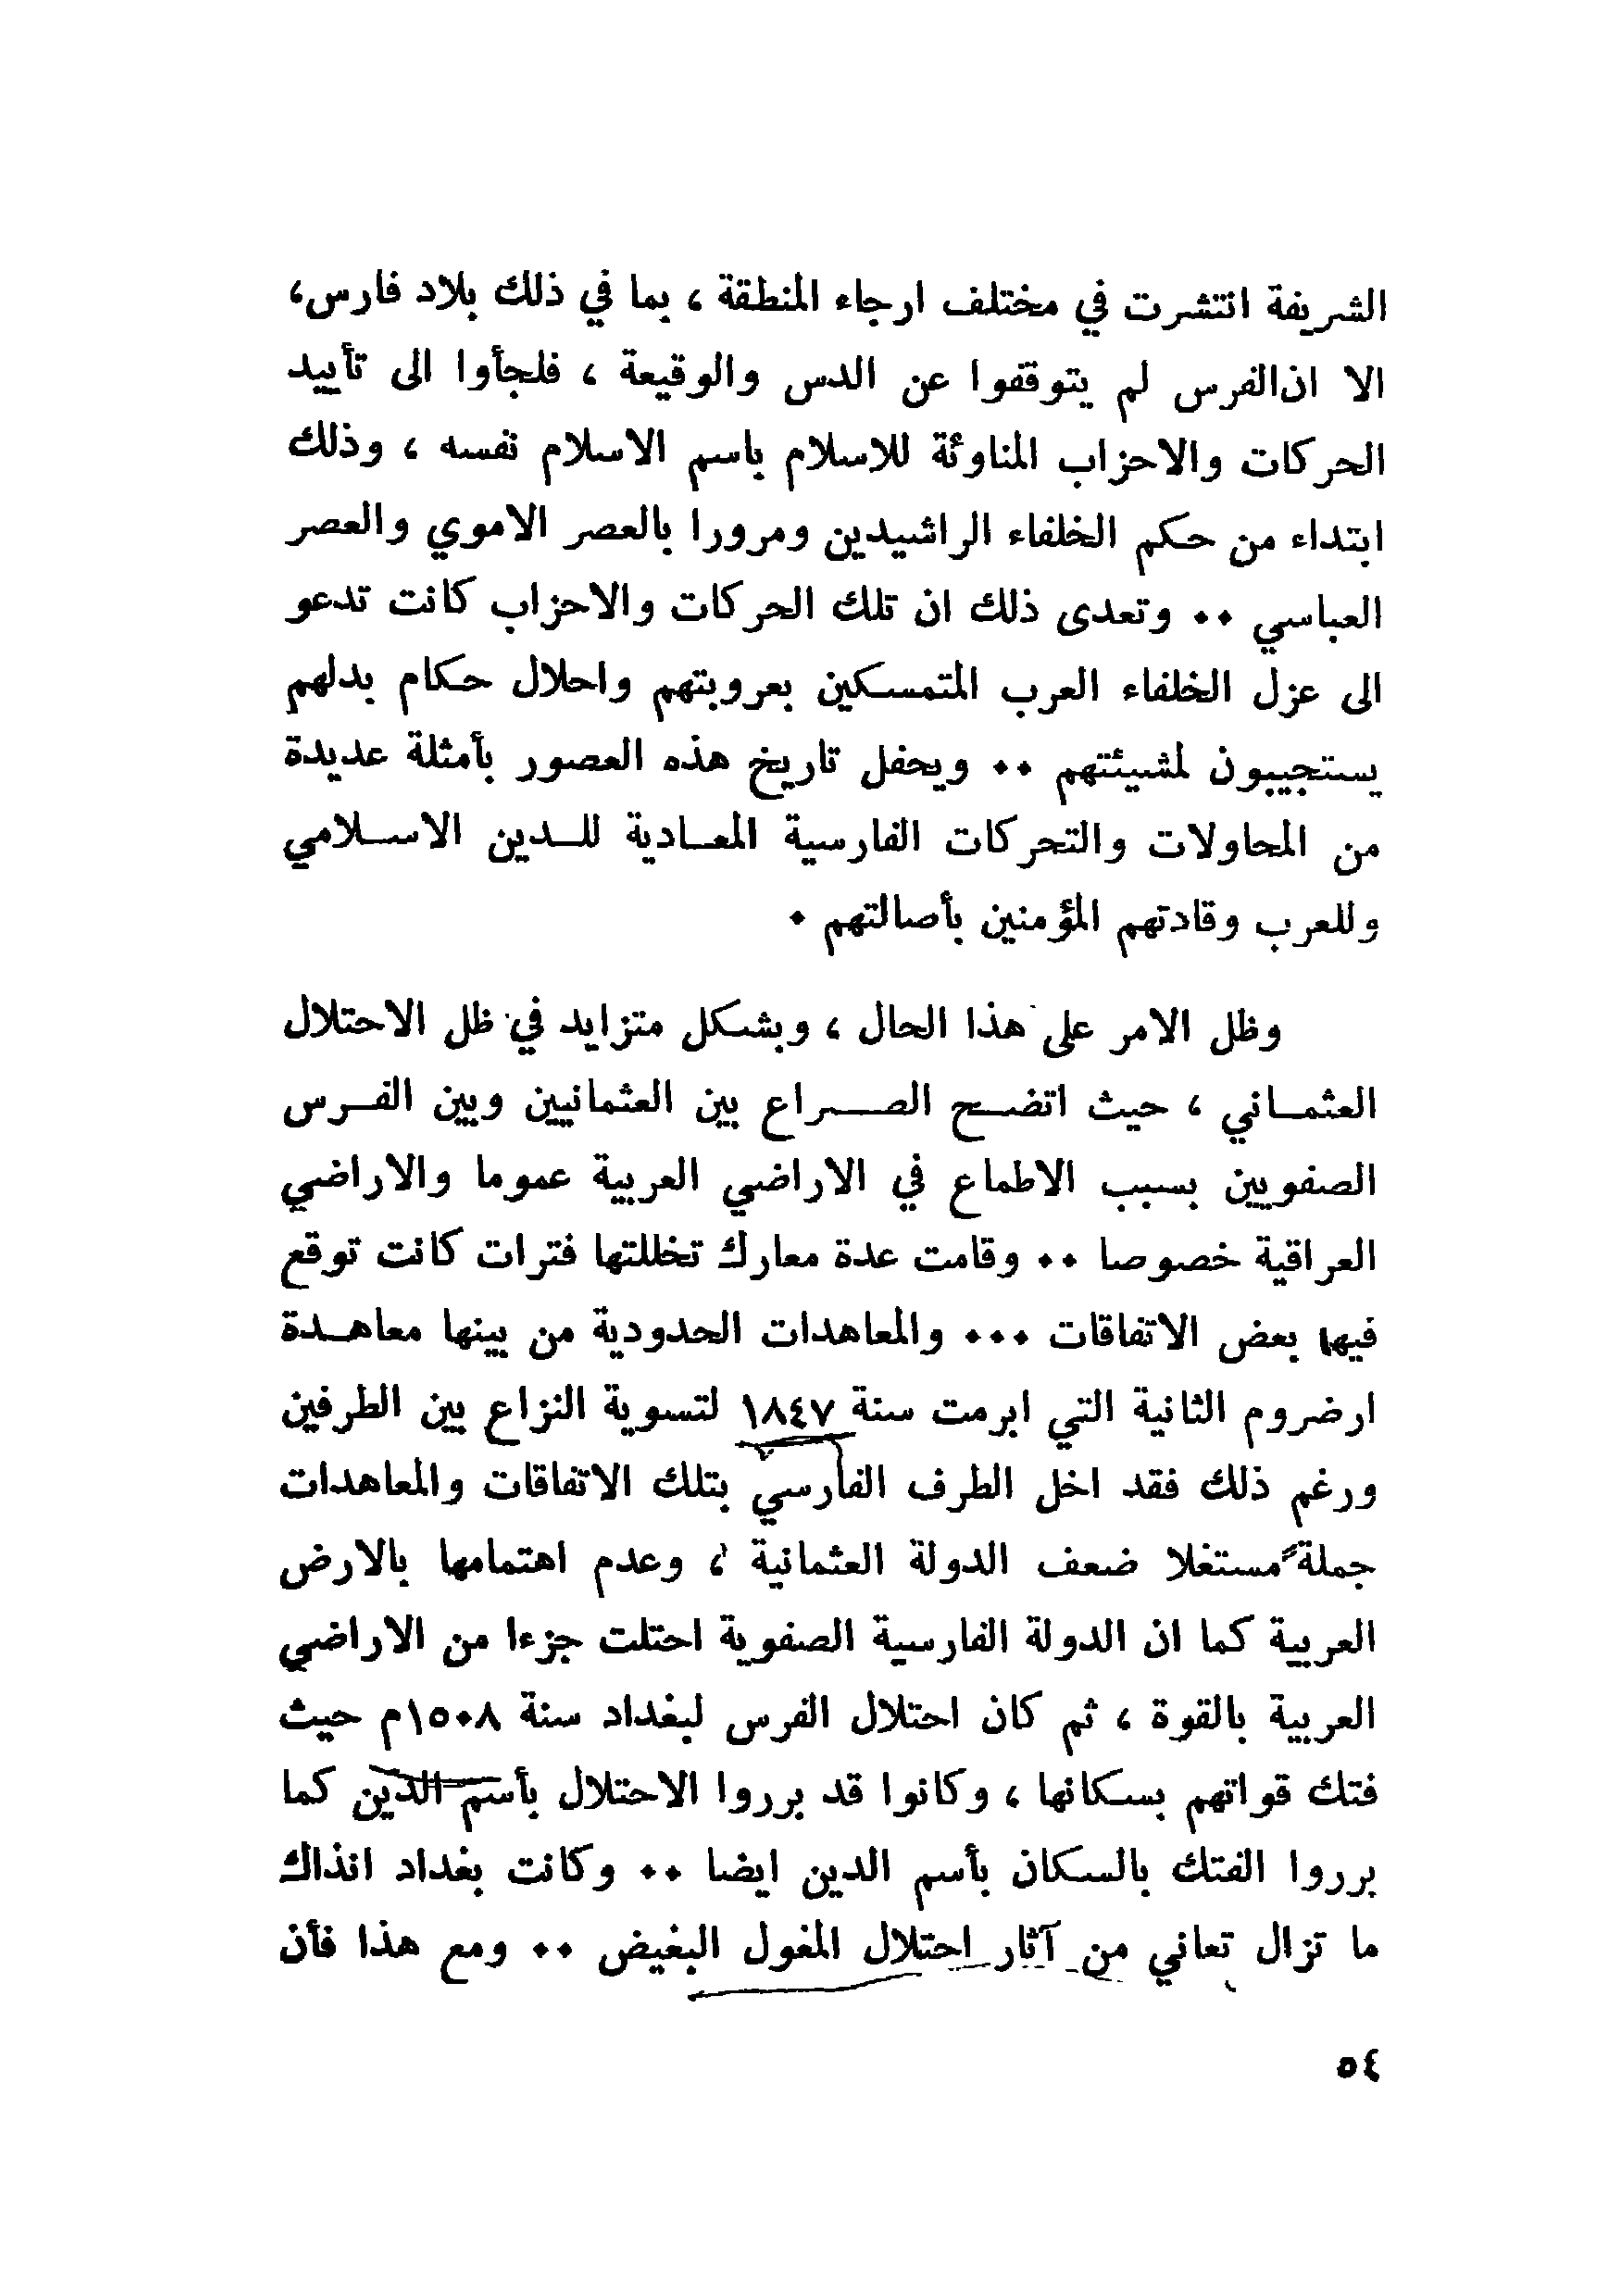 الشريفة انتشرت في مختلف ارجاء المنطقة ، بما في ذلك بلاد فارس،
الا ان الفرس لم يتوقفوا عن الدس والوقيعة ، فلجأوا الى تأييد
الحركات والاحزاب المناوئة للاسلام باسم الاسلام نفسه ، وذلك
ابتداء من حكم الخلفاء الراشيدين ومرورا بالعصر الاموي والعصر
العباسي ٠٠ وتعدى ذلك ان تلك الحركات والاحزاب كانت تدعو
الى عزل الخلفاء العرب المتمسكين بعروبتهم واحلال حكام بدلهم
يستجيبون لمشيئتهم ٠٠ ويحفل تاريخ هذه العصور بأمثلة عديدة
من المحاولات والتحركات الفارسية المعادية للدين الاسلامي
وللعرب وقادتهم المؤمنين بأصالتهم ٠
وظل الامر على هذا الحال ، وبشكل متزايد في ظل الاحتلال
العثماني ، حيث اتضح الصراع بين العثمانيين وبين الفرس
الصفويين بسبب الاطماع في الاراضي العربية عموما والاراضي
العراقية خصوصا ٠٠ وقامت عدة معارك تخللتها فترات كانت توقع
فيها بعض الاتفاقات ٠٠٠ والمعاهدات الحدودية من بينها معاهدة
ارضروم الثانية التي ابرمت سنة ١٨٤٧ لتسوية النزاع بين الطرفين
ورغم ذلك فقد اخل الطرف الفارسي بتلك الاتفاقات والمعاهدات
جملةً مستغلا ضعف الدولة العثمانية ، وعدم اهتمامها بالارض
العربية كما ان الدولة الفارسية الصفوية احتلت جزءا من الاراضي
العربية بالقوة ، ثم كان احتلال الفرس لبغداد سنة ١٥٠٨م حيث
فتك قواتهم بسكانها ، وكانوا قد برروا الاحتلال بأسم الدين كما
برروا الفتك بالسكان بأسم الدين ايضا ٠٠ وكانت بغداد انذاك
ما تزال تعاني من آثار احتلال المغول البغيض ٠٠ ومع هذا فأن
٥٤